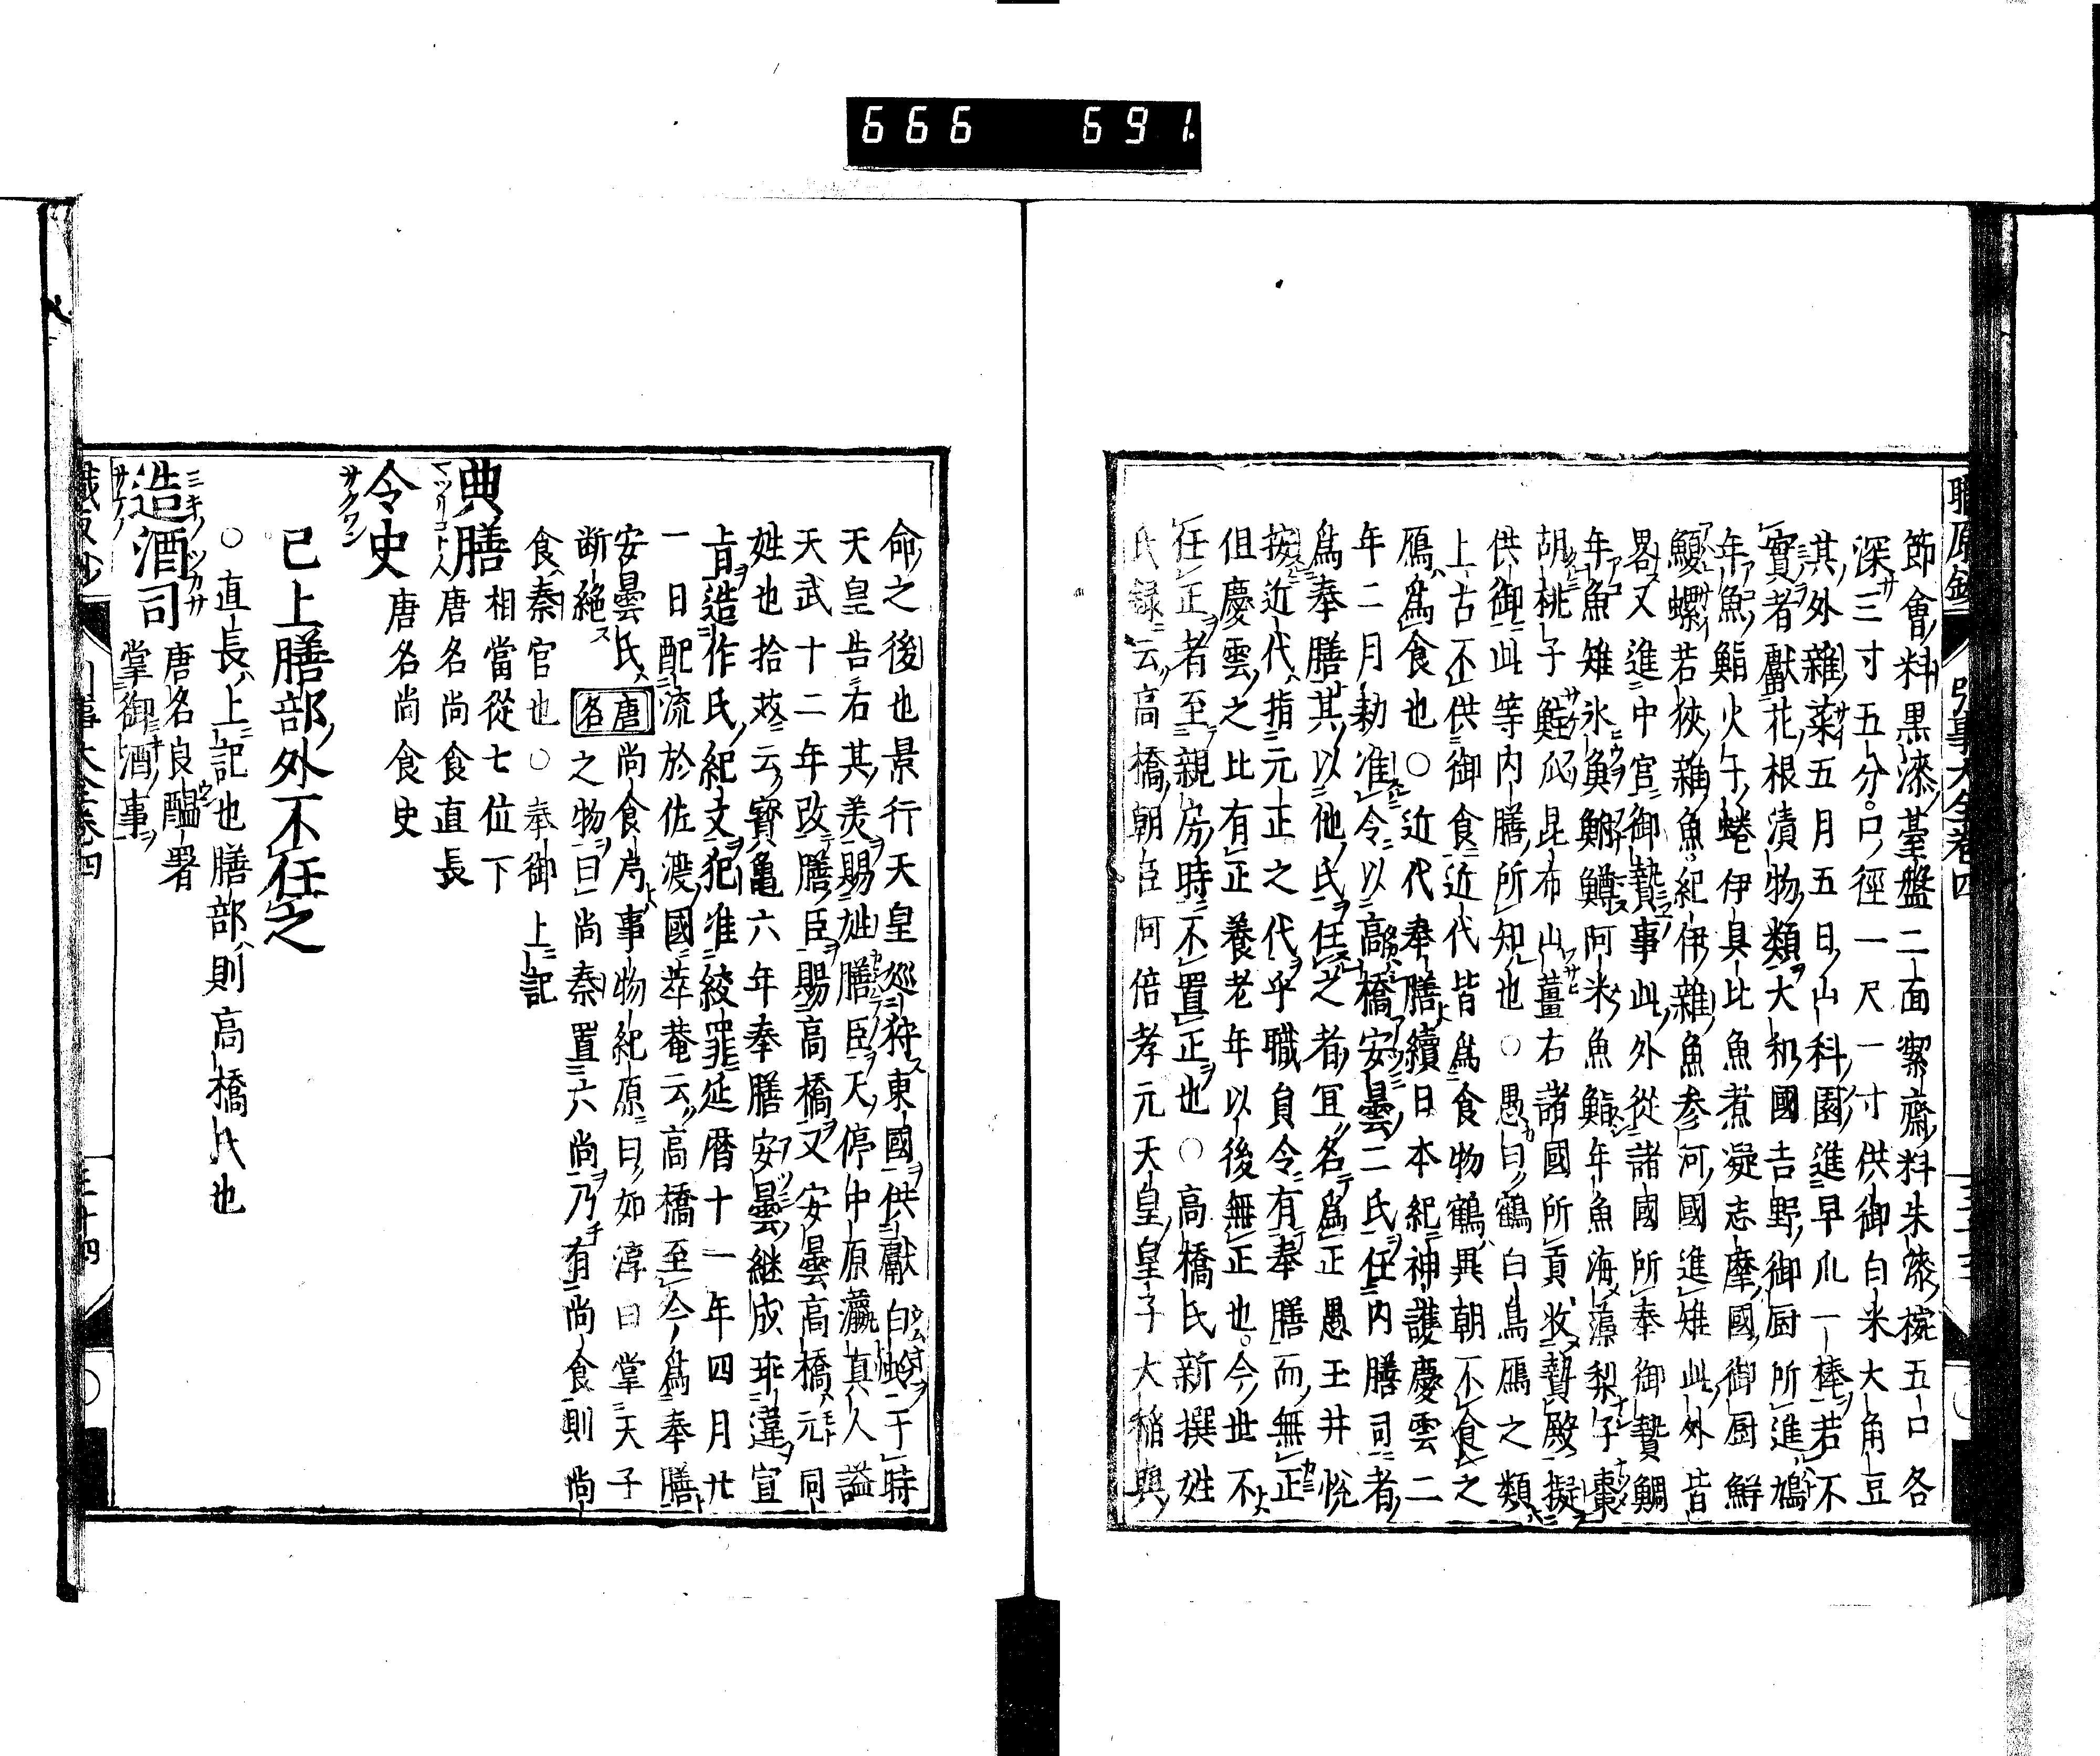 666 691
節會料黒漆臺盤二面潔齋料朱漆椀五口各
深三寸五分口徑一尺一寸供御白米大角豆
其外雜菜五月五日山科園進早瓜一棒若不
實者獻花根漬物類大和國吉野御厨所進鳩
年魚鮨火干蜷伊具比魚煮凝志摩國御厨鮮
鰒螺若狹雜魚紀伊雜魚參河國進雉此外皆
畧又進中宮御贄事此外從諸國所奉御贄鯛
年魚雉氷魚鮒鱒阿米魚鮨年魚海藻梨子棗
胡桃子鮭瓜昆布山薑右諸國所貢收贄殿擬
供御此等内膳所知也○愚曰鶴白鳥鴈之類
上古不供御食近代皆爲食物鶴異朝不食之
鴈爲食也○近代奉膳續日本紀神護慶雲二
年二月勅准令以高橋安曇二氏任内膳司者
爲奉膳其以他氏任之者冝名爲正愚王井恱
按近代指元正之代乎職員令有奉膳而無正
但慶雲之比有正養老年以後無正也今世不
任正者至親房時不置正也○高橋氏新撰姓
氏録云高橋朝臣阿倍孝元天皇皇子大稲輿
命之後也景行天皇巡狩東國供獻白蛤二干時
天皇告右其羙賜姓膳臣天停中原瀛真人謚
天武十二年改膳臣賜高橋又安曇高橋元同
姓也拾芥云寳亀六年奉膳安曇継成乖違宣
旨造作氏紀文犯准絞罪延暦十一年四月廿
一日配流於佐渡國莘菴云高橋至今爲奉膳
安曇氏断絶 唐名 尚食局事物紀原曰如淳曰掌天子
之物曰尚秦置六尚乃有尚食則尚
食秦官也○奉御上記
典膳 相當從七位下
唐名尚食直長
令史 唐名尚食史
已上膳部外不任之
○直長上記也膳部則高橋氏也
造酒司 唐名良醞署
掌御酒事